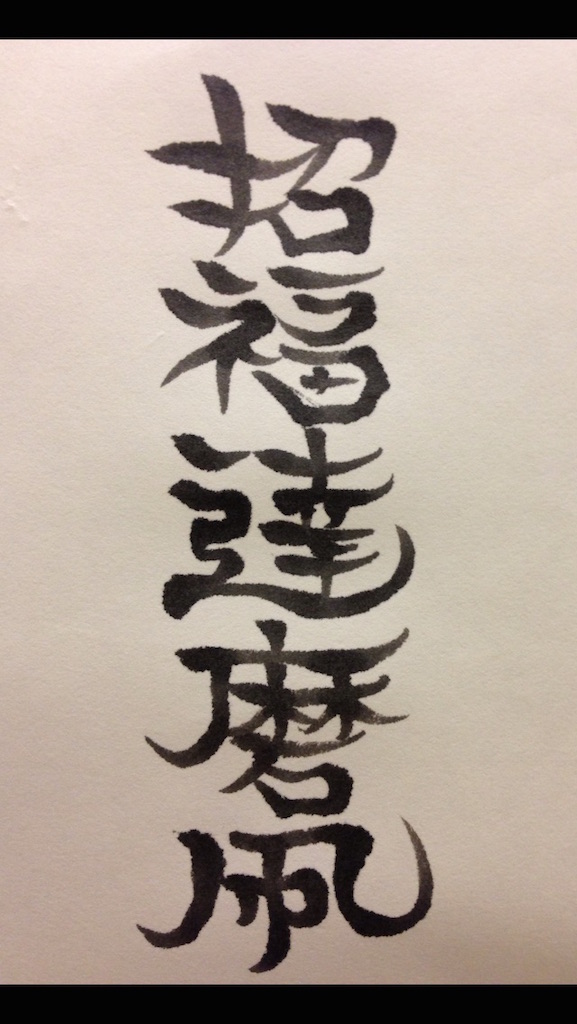 招福達磨凧